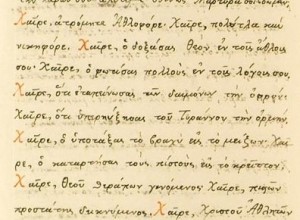 Χαῖρε, ἀτρόμητε Ἀθλοφόρε· Χαῖρε, πολύτλα καὶ
νικηφόρε. Χαῖρε, ὁ δοξάσας Θεὸν ἐν τοῖς ἄθλοις
σου· Χαῖρε, ὁ φωτίσας πολλοὺς ἐν τοῖς λόγοις σου.
Χαῖρε, ὅτι ἐταπείνωσας τῶν δαιμόνων τὴν ὀφρύν·
Χαῖρε, ὅτι ὑπερηύξησας τοῦ Τυράννου τὴν ὀργήν.
Χαῖρε, ὁ ὑποτάξας τὸ βραχὺ εἰς τὸ μεῖζον· Χαῖ-
ρε, ὁ καταρτήσας τοὺς πιστοὺς εἰς τὸ κρεῖττον.
Χαῖρε, Θεοῦ θεράπων γενόμενος· Χαῖρε, πιστῶν
προστάτης δεικνύμενος. Χαῖρε, Χριστοῦ Ἀθλητῶν